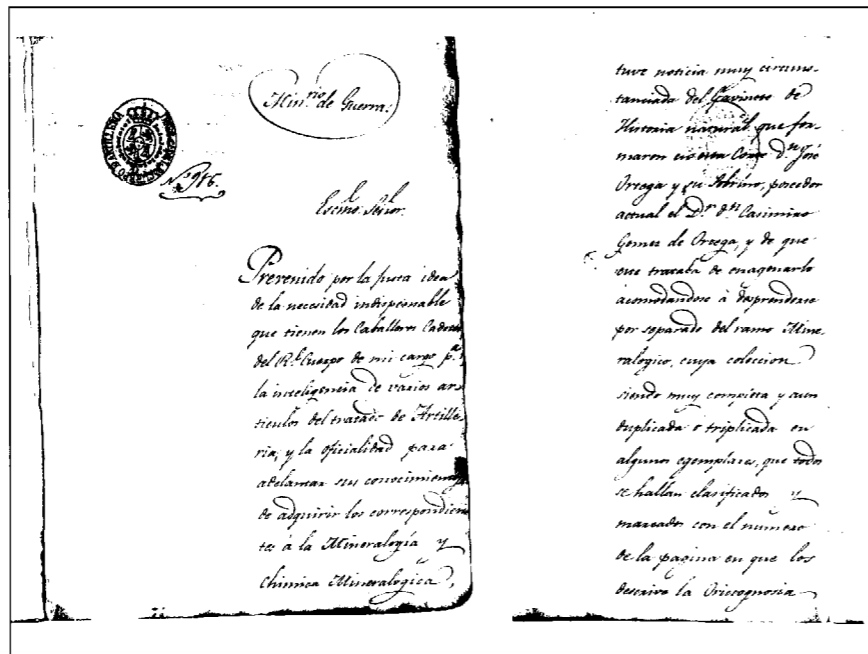 Min.rio de Guerra.
Nº 916.
Escmo. Señor.
Prevenido por la justa idea
de la necesidad indispensable
que tienen los Caballeros Cadetes
del Rl. Cuerpo de mi cargo pa.
la inteligencia de varios ar-
ticulos del tratado de Artille-
ria, y la oficialidad para
adelantar sus conocimientos
de adquirir los correspondien-
tes á la Mineralogía y
Chimica Mineralogica,
tuve noticia muy circuns-
tanciada del Gavinete de
Historia natural que for-
maron en esta Corte dn. José
Ortega y su sobrino, poseedor
actual el Dr. dn. Casimiro
Gomez de Ortega, y de que
este trataba de enagenarlo
acomodandose á desprenderse
por separado del ramo Mine-
ralogico, cuya coleccion
siendo muy completa y aun
duplicada ó triplicada en
algunos egemplares, que todos
se hallan clasificados y
marcados con el numero
de la pagina en que los
descrive la Orictognosia